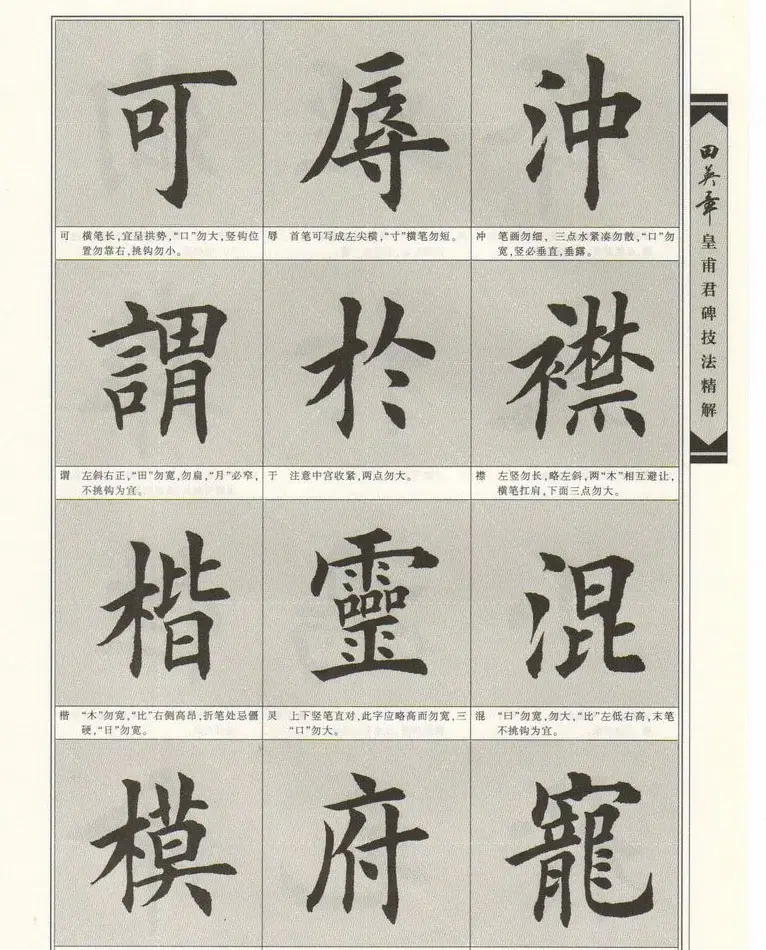 可
辱
沖
可 横笔长,宜呈拱势,“口”勿大,竖钩位
置勿靠右,挑钩勿小。
辱 首笔可写成左尖横,“寸”横笔勿短。
冲 笔画勿细，三点水紧凑勿散,“口”勿
宽,竖必垂直,垂露。
謂
於
襟
谓 左斜右正,“田”勿宽,勿扁,“月”必窄,
不挑钩为宜。
于 注意中宫收紧,两点勿大。
襟 左竖勿长,略左斜,两“木”相互避让,
横笔扛肩,下面三点勿大。
楷
靈
混
楷 “木”勿宽,“比”右侧高昂,折笔处忌僵
硬,“日”勿宽。
灵 上下竖笔直对,此字应略高而勿宽,三
“口”勿大。
混 “曰”勿宽,勿大,“比”左低右高,末笔
不挑钩为宜。
模
府
寵
田英章皇甫君碑技法精解